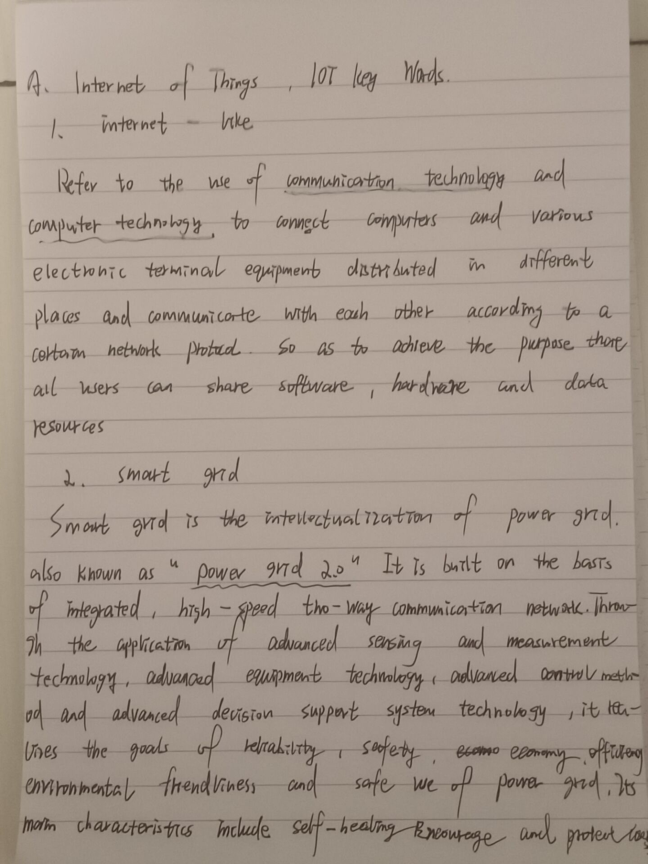 A. Internet of Things , IOT key Words.
1. internet - like
Refer to the use of communication technology and
computer technology, to connect computers and various
electronic terminal equipment distributed in different
places and communicate with each other according to a
certain network protocol. So as to achieve the purpose there
all users can share software, hardware and data
resources
2. smart grid
Smart grid is the intellectualization of power grid.
also known as "power grid 2.0" It is built on the basis
of integrated, high-speed two-way communication network. Throu-
gh the application of advanced sensing and measurement
technology, advanced equipment technology, advanced control meth-
od and advanced decision support system technology, it rea-
lises the goals of reliability, safety, economy, efficiency
environmental friendliness and safe use of power grid. Its
main characteristics include self-healing Encourage and protect